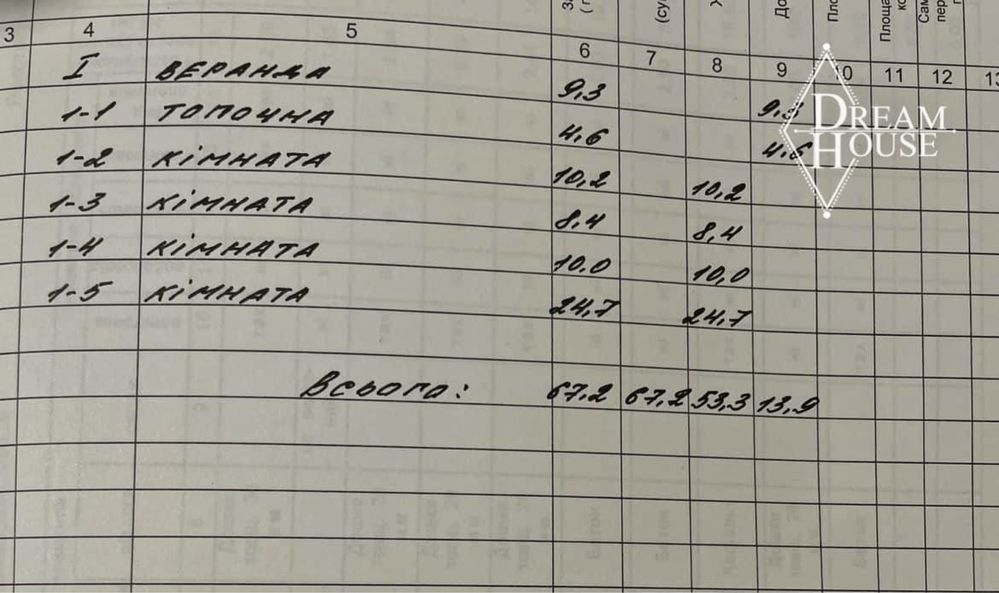 3 4 5 6 7 8 9 10 11 12 13
I ВЕРАНДА 9,3 9,3
1-1 ТОПОЧНА 4.6 4.6
1-2 КІМНАТА 10,2 10,2
1-3 КІМНАТА 8,4 8,4
1-4 КІМНАТА 10.0 10,0
1-5 КІМНАТА 24,7 24,7
Всього: 67.2 67.2 53,3 13,9
DREAM
HOUSE